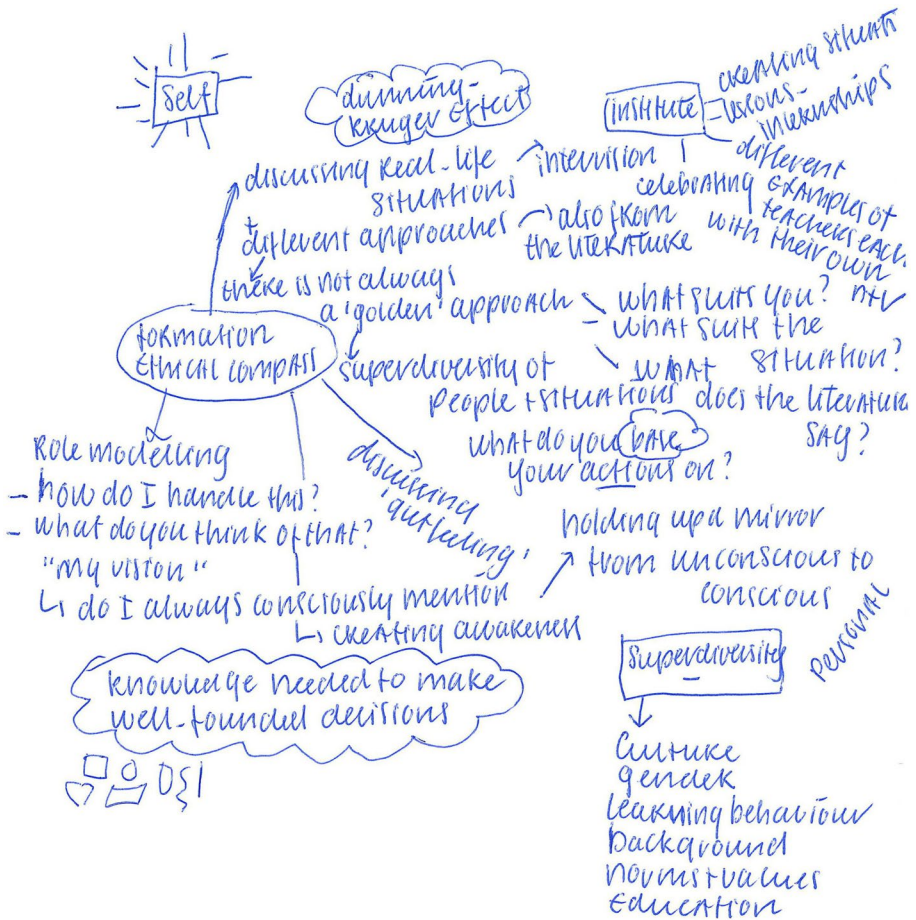 Self
dunning-
kruger effect
institute
creating situati
- lessons-
internships
different
examples of
teachers each
with their own
celebrating
discussing real-life
situations
intervision
+
different approaches
also from
the literature
there is not always
a 'golden' approach
- what suits you?
- what suit the
situation?
- what
does the literature
say?
formation
ethical compass
superdiversity of
people + situations
what do you base
your actions on?
Role modelling
- how do I handle this?
- what do you think of that?
"my vision"
↳ do I always consciously mention
↳ creating awareness
discussing
holding up a mirror
from unconscious to
conscious
knowledge needed to make
well-founded decisions
Superdiversity
personal
culture
gender
learning behaviour
background
norms + values
education